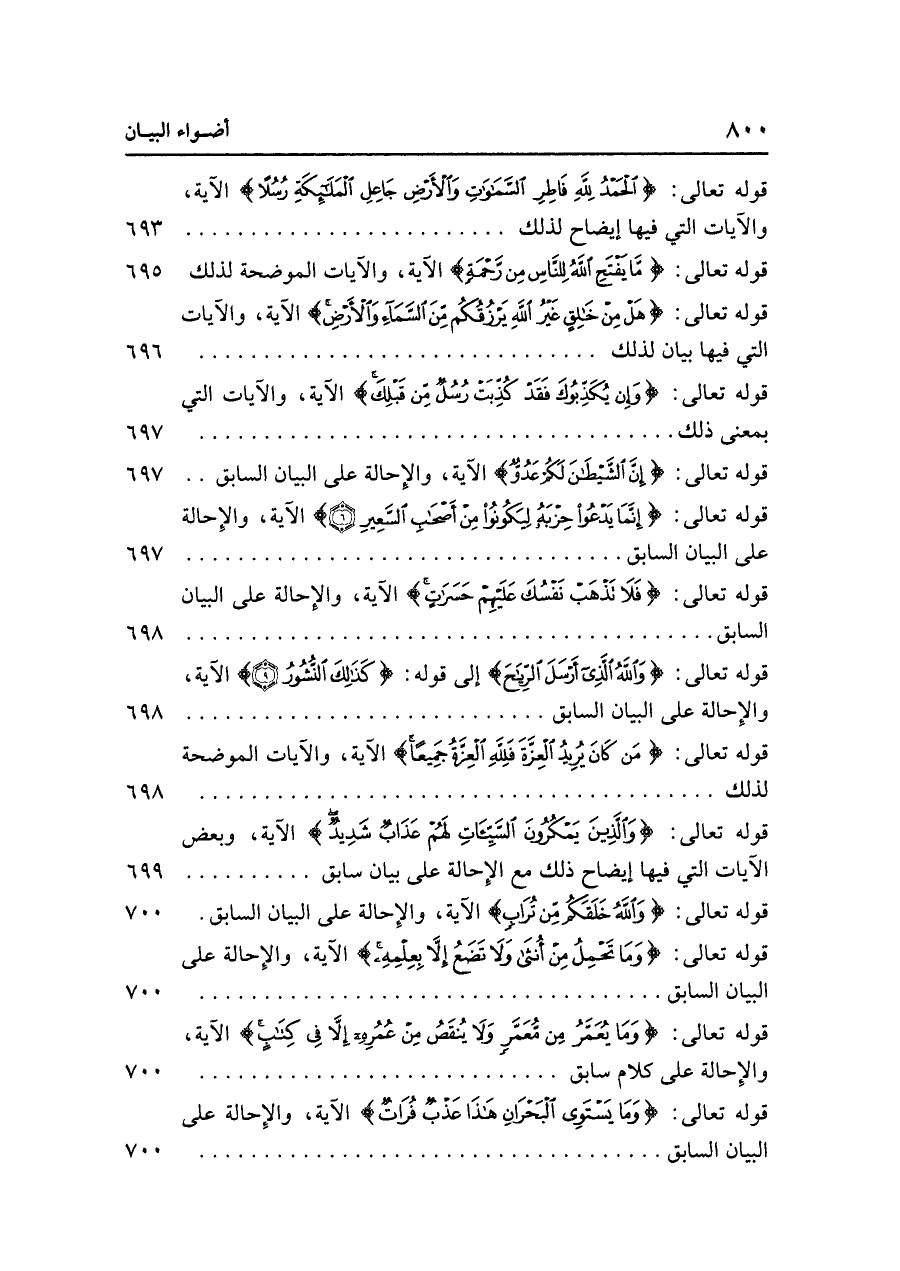 ٨٠٠ أضـواء البيـان
قوله تعالى: ﴿ ٱلْحَمْدُ لِلَّهِ فَاطِرِ ٱلسَّمَٰوَٰتِ وَٱلْأَرْضِ جَاعِلِ ٱلْمَلَٰٓئِكَةِ رُسُلًا ﴾ الآية،
والآيات التي فيها إيضاح لذلك . . . . . . . . . . . . . . . . . . . . . . . . . ٦٩٣
قوله تعالى: ﴿ مَّا يَفْتَحِ ٱللَّهُ لِلنَّاسِ مِن رَّحْمَةٍ﴾ الآية، والآيات الموضحة لذلك ٦٩٥
قوله تعالى: ﴿ هَلْ مِنْ خَٰلِقٍ غَيْرُ ٱللَّهِ يَرْزُقُكُم مِّنَ ٱلسَّمَآءِ وَٱلْأَرْضِۚ﴾ الآية، والآيات
التي فيها بيان لذلك . . . . . . . . . . . . . . . . . . . . . . . . . . . . . . . ٦٩٦
قوله تعالى: ﴿ وَإِن يُكَذِّبُوكَ فَقَدْ كُذِّبَتْ رُسُلٌ مِّن قَبْلِكَۚ﴾ الآية، والآيات التي
بمعنى ذلك. . . . . . . . . . . . . . . . . . . . . . . . . . . . . . . . . . . . . ٦٩٧
قوله تعالى: ﴿ إِنَّ ٱلشَّيْطَٰنَ لَكُمْ عَدُوٌّ﴾ الآية، والإحالة على البيان السابق . . ٦٩٧
قوله تعالى: ﴿ إِنَّمَا يَدْعُوا۟ حِزْبَهُۥ لِيَكُونُوا۟ مِنْ أَصْحَٰبِ ٱلسَّعِيرِ ۝٦﴾ الآية، والإحالة
على البيان السابق. . . . . . . . . . . . . . . . . . . . . . . . . . . . . . . . . . ٦٩٧
قوله تعالى: ﴿ فَلَا تَذْهَبْ نَفْسُكَ عَلَيْهِمْ حَسَرَٰتٍۚ﴾ الآية، والإحالة على البيان
السابق. . . . . . . . . . . . . . . . . . . . . . . . . . . . . . . . . . . . . . . . . ٦٩٨
قوله تعالى: ﴿ وَٱللَّهُ ٱلَّذِىٓ أَرْسَلَ ٱلرِّيَٰحَ﴾ إلى قوله: ﴿ كَذَٰلِكَ ٱلنُّشُورُ ۝٩﴾ الآية،
والإحالة على البيان السابق . . . . . . . . . . . . . . . . . . . . . . . . . . . . ٦٩٨
قوله تعالى: ﴿ مَن كَانَ يُرِيدُ ٱلْعِزَّةَ فَلِلَّهِ ٱلْعِزَّةُ جَمِيعًاۚ﴾ الآية، والآيات الموضحة
لذلك . . . . . . . . . . . . . . . . . . . . . . . . . . . . . . . . . . . . . . . . ٦٩٨
قوله تعالى: ﴿ وَٱلَّذِينَ يَمْكُرُونَ ٱلسَّيِّـَٔاتِ لَهُمْ عَذَابٌ شَدِيدٌۖ ﴾ الآية، وبعض
الآيات التي فيها إيضاح ذلك مع الإحالة على بيان سابق . . . . . . . . . . ٦٩٩
قوله تعالى: ﴿ وَٱللَّهُ خَلَقَكُم مِّن تُرَابٍ﴾ الآية، والإحالة على البيان السابق. ٧٠٠
قوله تعالى: ﴿ وَمَا تَحْمِلُ مِنْ أُنثَىٰ وَلَا تَضَعُ إِلَّا بِعِلْمِهِۦۚ﴾ الآية، والإحالة على
البيان السابق . . . . . . . . . . . . . . . . . . . . . . . . . . . . . . . . . . . . ٧٠٠
قوله تعالى: ﴿ وَمَا يُعَمَّرُ مِن مُّعَمَّرٍ وَلَا يُنقَصُ مِنْ عُمُرِهِۦٓ إِلَّا فِى كِتَٰبٍۚ﴾ الآية،
والإحالة على كلام سابق . . . . . . . . . . . . . . . . . . . . . . . . . . . . ٧٠٠
قوله تعالى: ﴿ وَمَا يَسْتَوِى ٱلْبَحْرَانِ هَٰذَا عَذْبٌ فُرَاتٌ﴾ الآية، والإحالة على
البيان السابق . . . . . . . . . . . . . . . . . . . . . . . . . . . . . . . . . . . . ٧٠٠